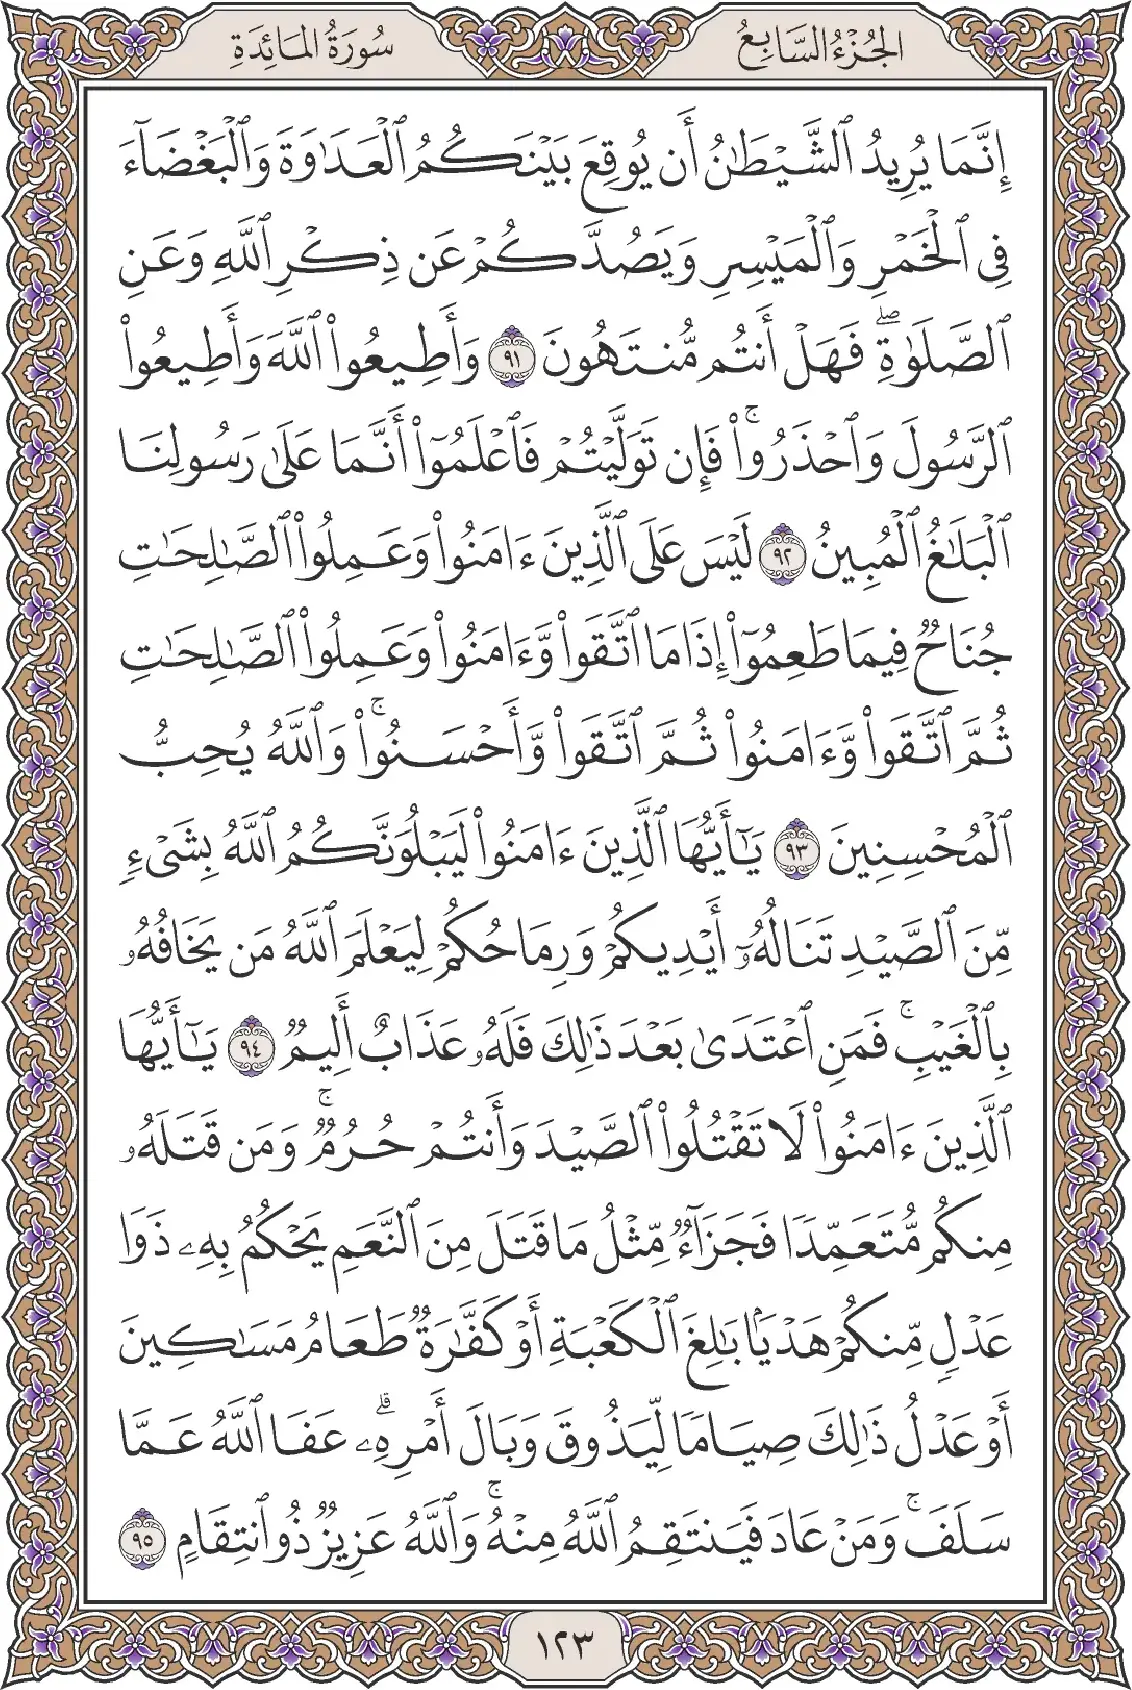 الجُزْءُ السَّابِعُ
سُورَةُ المَائِدَةِ
إِنَّمَا يُرِيدُ ٱلشَّيْطَٰنُ أَن يُوقِعَ بَيْنَكُمُ ٱلْعَدَٰوَةَ وَٱلْبَغْضَآءَ
فِى ٱلْخَمْرِ وَٱلْمَيْسِرِ وَيَصُدَّكُمْ عَن ذِكْرِ ٱللَّهِ وَعَنِ
ٱلصَّلَوٰةِۖ فَهَلْ أَنتُم مُّنتَهُونَ ٩١ وَأَطِيعُوا۟ ٱللَّهَ وَأَطِيعُوا۟
ٱلرَّسُولَ وَٱحْذَرُوا۟ۚ فَإِن تَوَلَّيْتُمْ فَٱعْلَمُوٓا۟ أَنَّمَا عَلَىٰ رَسُولِنَا
ٱلْبَلَٰغُ ٱلْمُبِينُ ٩٢ لَيْسَ عَلَى ٱلَّذِينَ ءَامَنُوا۟ وَعَمِلُوا۟ ٱلصَّٰلِحَٰتِ
جُنَاحٌ فِيمَا طَعِمُوٓا۟ إِذَا مَا ٱتَّقَوا۟ وَّءَامَنُوا۟ وَعَمِلُوا۟ ٱلصَّٰلِحَٰتِ
ثُمَّ ٱتَّقَوا۟ وَّءَامَنُوا۟ ثُمَّ ٱتَّقَوا۟ وَّأَحْسَنُوا۟ۚ وَٱللَّهُ يُحِبُّ
ٱلْمُحْسِنِينَ ٩٣ يَٰٓأَيُّهَا ٱلَّذِينَ ءَامَنُوا۟ لَيَبْلُوَنَّكُمُ ٱللَّهُ بِشَىْءٍ
مِّنَ ٱلصَّيْدِ تَنَالُهُۥٓ أَيْدِيكُمْ وَرِمَاحُكُمْ لِيَعْلَمَ ٱللَّهُ مَن يَخَافُهُۥ
بِٱلْغَيْبِۚ فَمَنِ ٱعْتَدَىٰ بَعْدَ ذَٰلِكَ فَلَهُۥ عَذَابٌ أَلِيمٌ ٩٤ يَٰٓأَيُّهَا
ٱلَّذِينَ ءَامَنُوا۟ لَا تَقْتُلُوا۟ ٱلصَّيْدَ وَأَنتُمْ حُرُمٌۚ وَمَن قَتَلَهُۥ
مِنكُم مُّتَعَمِّدًا فَجَزَآءٌ مِّثْلُ مَا قَتَلَ مِنَ ٱلنَّعَمِ يَحْكُمُ بِهِۦ ذَوَا
عَدْلٍ مِّنكُمْ هَدْيًۢا بَٰلِغَ ٱلْكَعْبَةِ أَوْ كَفَّٰرَةٌ طَعَامُ مَسَٰكِينَ
أَوْ عَدْلُ ذَٰلِكَ صِيَامًا لِّيَذُوقَ وَبَالَ أَمْرِهِۦۗ عَفَا ٱللَّهُ عَمَّا
سَلَفَۚ وَمَنْ عَادَ فَيَنتَقِمُ ٱللَّهُ مِنْهُۚ وَٱللَّهُ عَزِيزٌ ذُو ٱنتِقَامٍ ٩٥
١٢٣